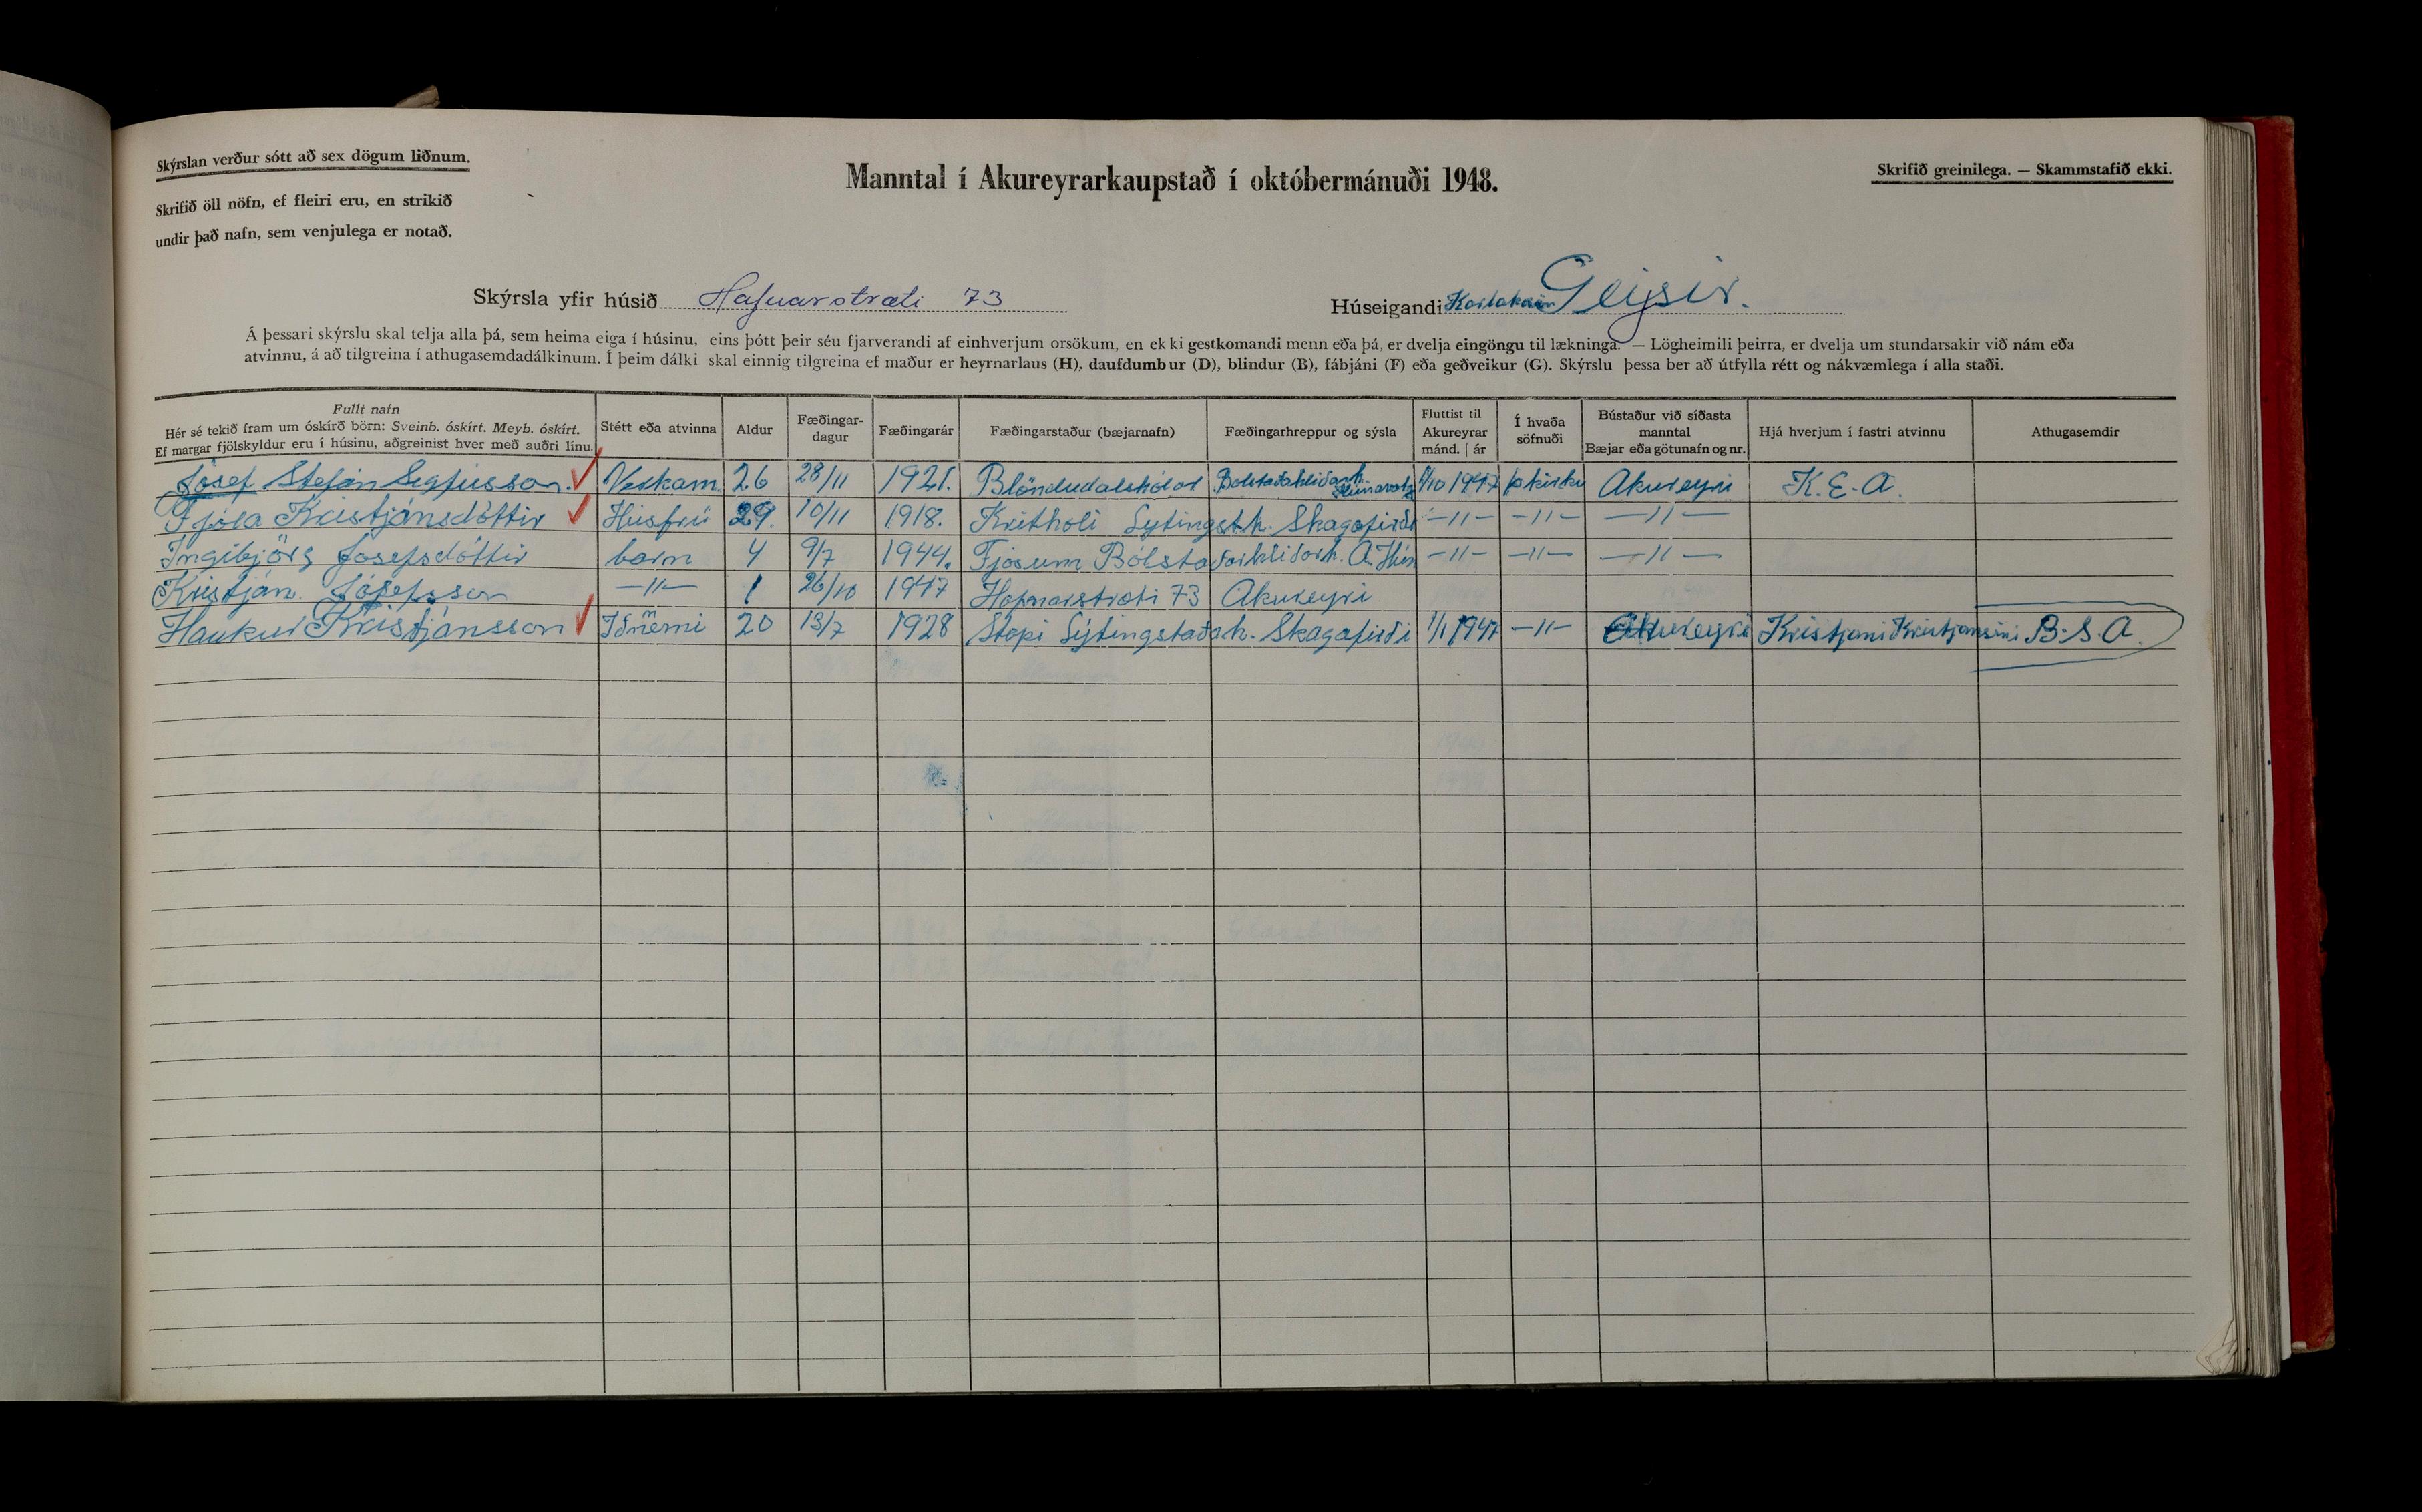 Skýrslan verður sótt að sex dögum liðnum.
Skrifið öll nöfn, ef fleiri eru, en strikið
undir það nafn, sem venjulega er notað.
Manntal í Akureyrarkaupstað í októbermánuði 1948.
Skrifið greinilega. — Skammstafið ekki.
Skýrsla yfir húsið Hafnarstræti 73
Húseigandi Karlakórinn Geysir.
Á þessari skýrslu skal telja alla þá, sem heima eiga í húsinu, eins þótt þeir séu fjarverandi af einhverjum orsökum, en ekki gestkomandi menn eða þá, er dvelja eingöngu til lækninga. — Lögheimili þeirra, er dvelja um stundarsakir við nám eða
atvinnu, á að tilgreina í athugasemdadálkinum. Í þeim dálki skal einnig tilgreina ef maður er heyrnarlaus (H), daufdumbur (D), blindur (B), fábjáni (F) eða geðveikur (G). Skýrslu þessa ber að útfylla rétt og nákvæmlega í alla staði.
Fullt nafn
Hér sé tekið fram um óskírð börn: Sveinb. óskírt. Meyb. óskírt.
Ef margar fjölskyldur eru í húsinu, aðgreinist hver með auðri línu.
Stétt eða atvinna
Aldur
Fæðingar-
dagur
Fæðingarár
Fæðingarstaður (bæjarnafn)
Fæðingarhreppur og sýsla
Fluttist til
Akureyrar
mánd. | ár
Í hvaða
söfnuði
Bústaður við síðasta
manntal
Bæjar eða götunafn og nr.
Hjá hverjum í fastri atvinnu
Athugasemdir
Jósef Stefán Sigfússon. Verkam. 26 28/11 1921. Blöndudalshólar Bolstaðahliðarh. Húnavats /10 1947 þkirku Akureyri K.E.A.
Fjóla Kristjánsdóttir Húsfrú 29. 10/11 1918. Kritholi Lytingsth. Skagafirði —11— —11— —11—
Ingibjörg Josefsdóttir barn 4 9/7 1944. Fjosum Bólstaðarhliðarh. A. Hún —11— —11— —11—
Kristján Jósefsson —11— 1 26/10 1947 Hafnarstræti 73 Akureyri
Haukur Kristjánsson Iðnnemi 20 13/7 1928 Stapi Lýtingstaðah. Skagafirði 1/1 1947 —11— Akureyri Kristjani Kristjanssini B.S.A.